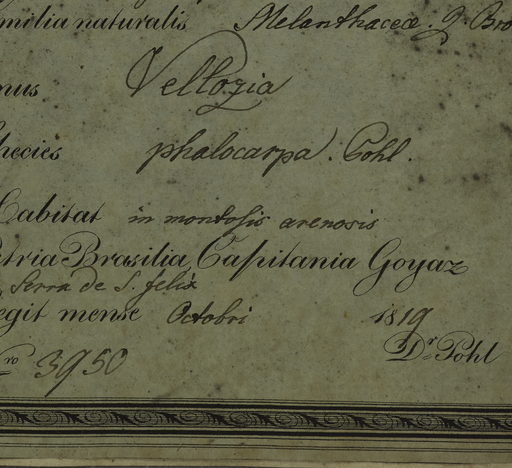 milia naturalis Melanthaceæ. Bro
nus Vellozia
pecies phalocarpa. Pohl.
Habitat in montosis arenosis
tria Brasilia, Capitania Goyaz
Serra de S. felix
egit mense Octobri 1819
Dr. Pohl
ro 3950